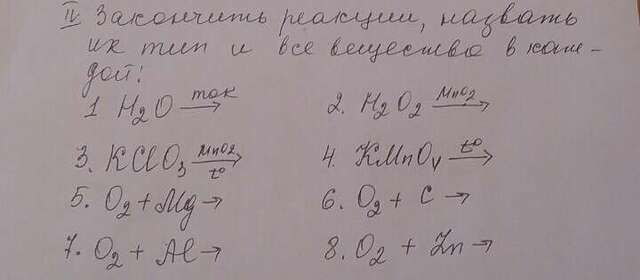 IV. Закончить реакции, назвать
их тип и все вещества в каж-
дой!
1 H₂O —ток→ 2. H₂O₂ —MnO₂→
3. KClO₃ —MnO₂, t°→ 4. KMnO₄ —t°→
5. O₂ + Mg → 6. O₂ + C →
7. O₂ + Al → 8. O₂ + Zn →